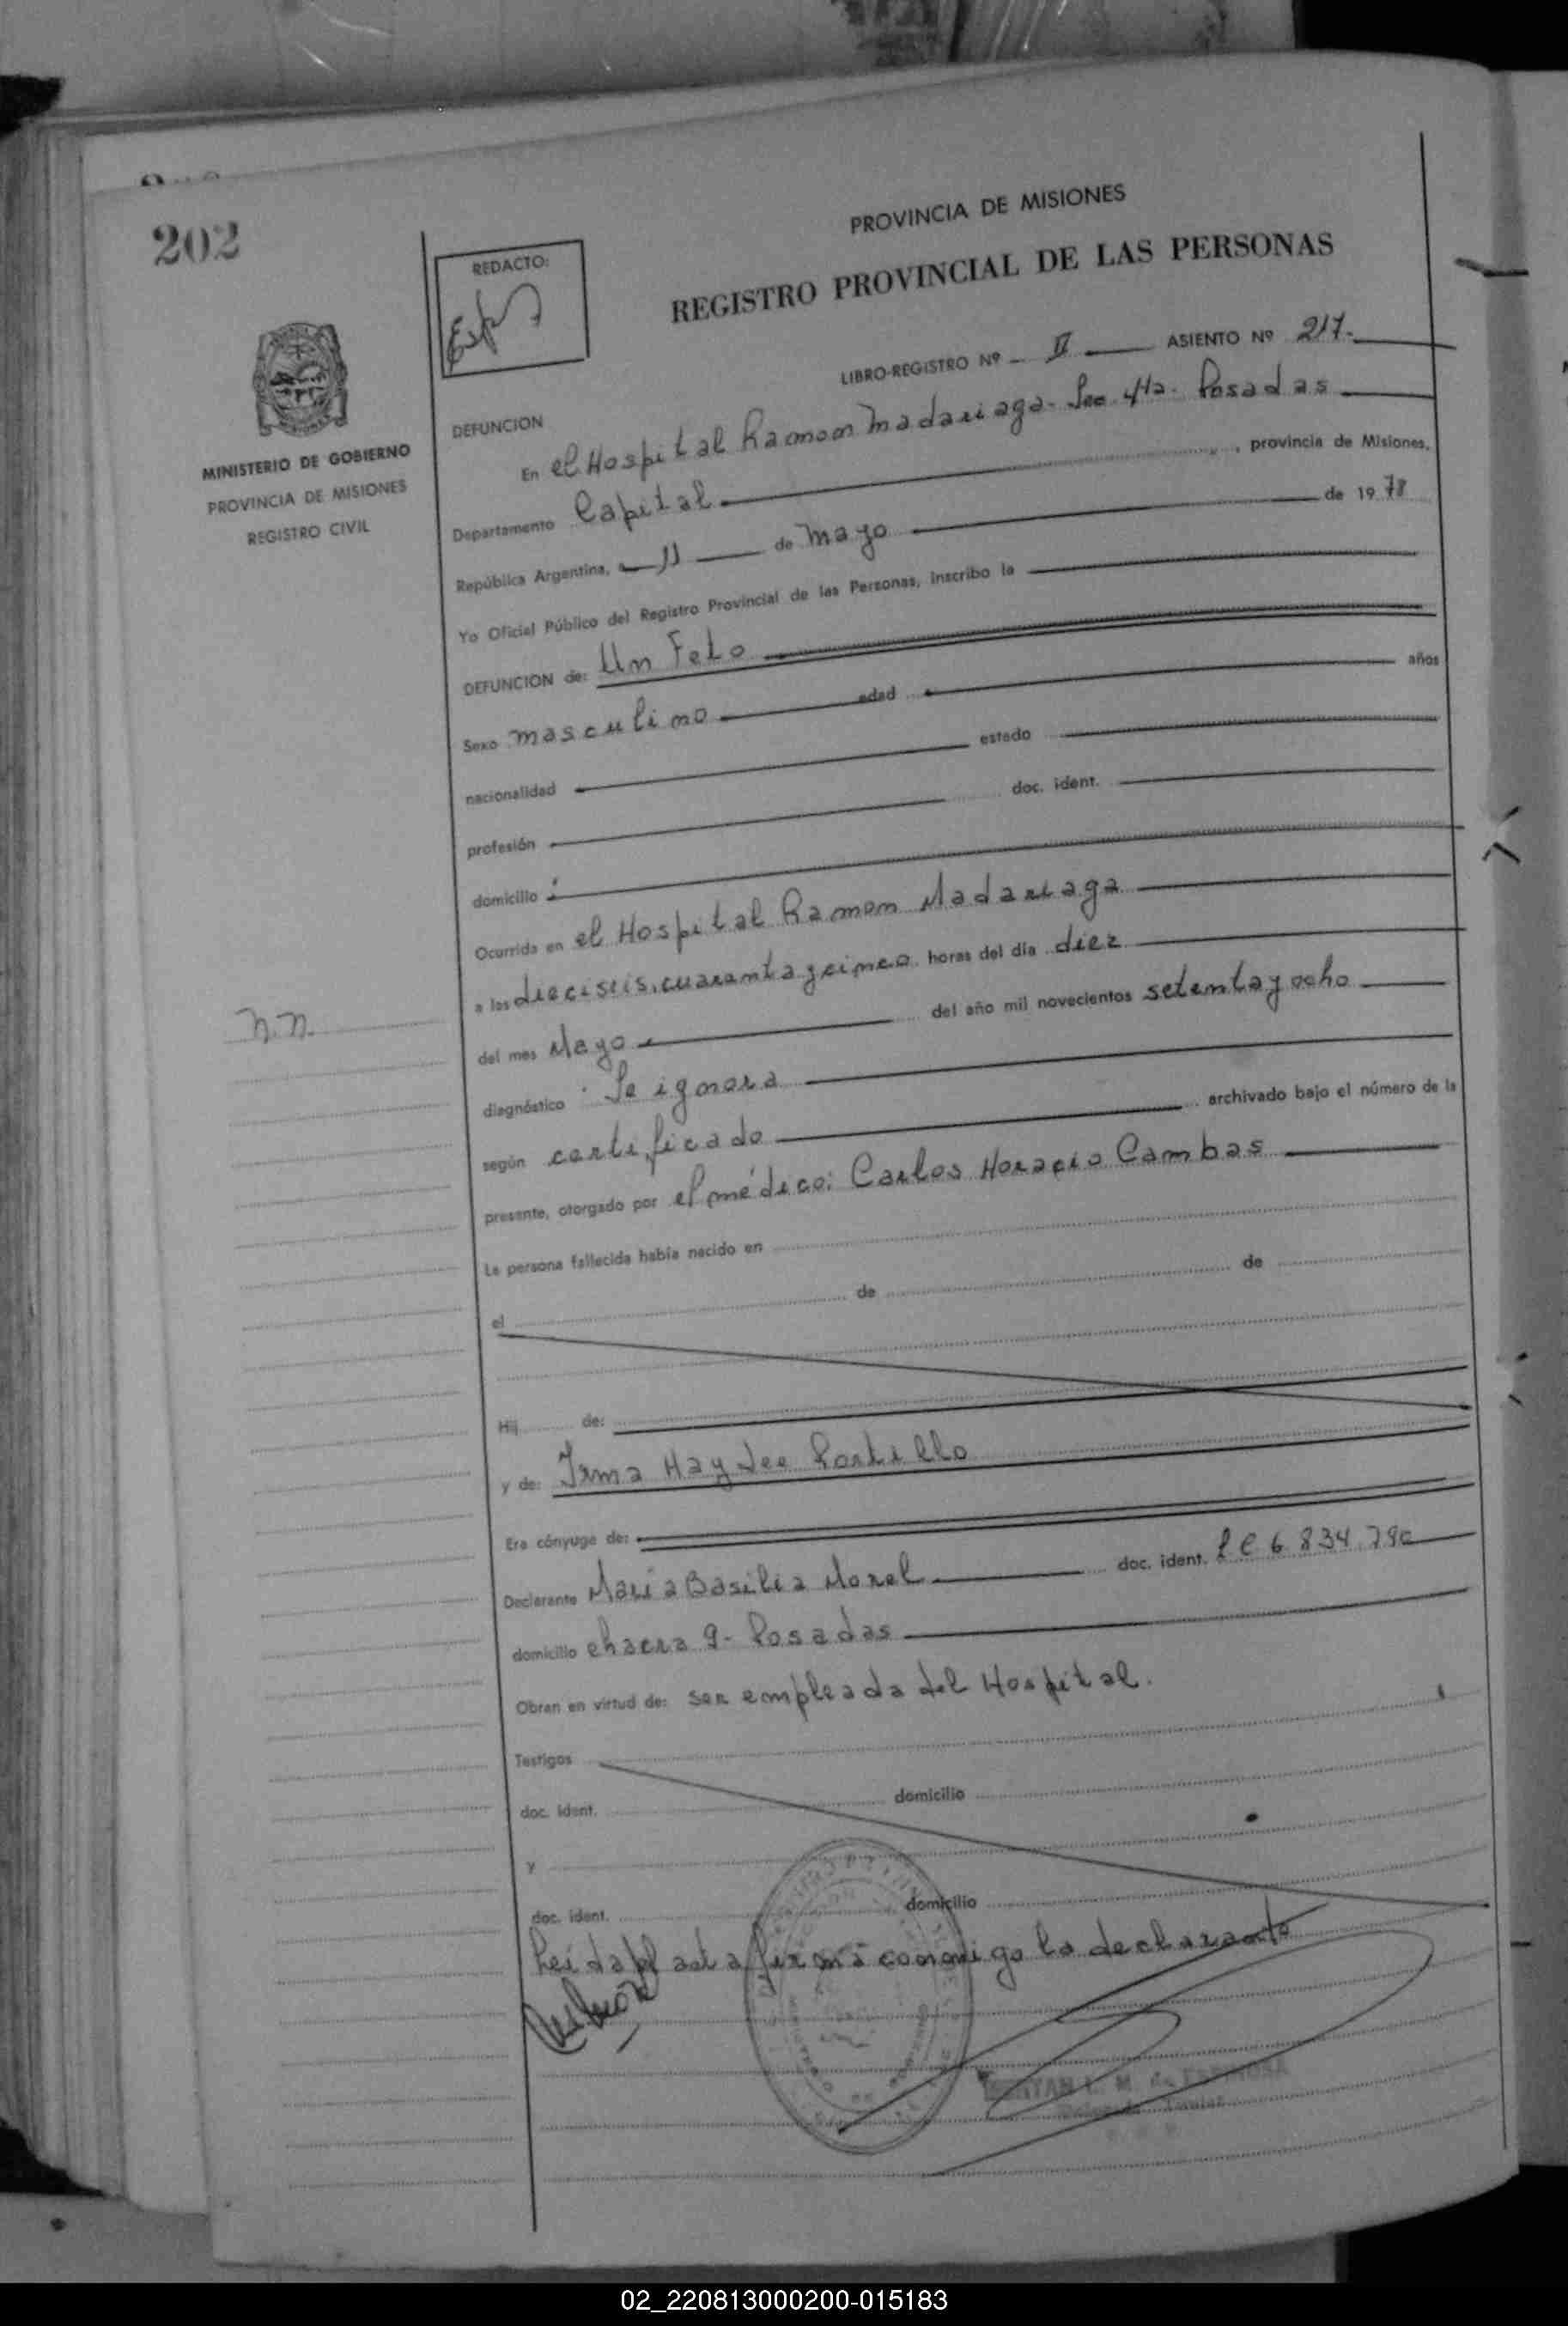 202
PROVINCIA DE MISIONES
REGISTRO PROVINCIAL DE LAS PERSONAS
REDACTO:
LIBRO-REGISTRO Nº II ASIENTO Nº 217.
MINISTERIO DE GOBIERNO
PROVINCIA DE MISIONES
REGISTRO CIVIL
DEFUNCION
En el Hospital Ramon Madariaga - Sec. 4ta. Posadas
Departamento Capital, provincia de Misiones,
República Argentina, a 11 de Mayo de 1978
Yo Oficial Público del Registro Provincial de las Personas, inscribo la
DEFUNCION de: Un Feto
Sexo masculino edad años
nacionalidad estado
profesión doc. ident.
domicilio
Ocurrida en el Hospital Ramon Madariaga
a las dieciseis, cuarenta y cinco horas del día diez
del mes Mayo del año mil novecientos setenta y ocho
N.N.
diagnóstico Se ignora
según certificado archivado bajo el número de la
presente, otorgado por el médico: Carlos Horacio Cambas
La persona fallecida había nacido en
el de de
Hij de:
y de: Irma Haydee Portillo
Era cónyuge de:
Declarante Maria Basilia Morel doc. ident. LC 6834790
domicilio chacra 9 - Posadas
Obran en virtud de: ser empleada del Hospital.
Testigos
doc. ident. domicilio
y
doc. ident. domicilio
Leida el acta firma conmigo la declarante
L. M. de ESPINOSA
02_220813000200-015183